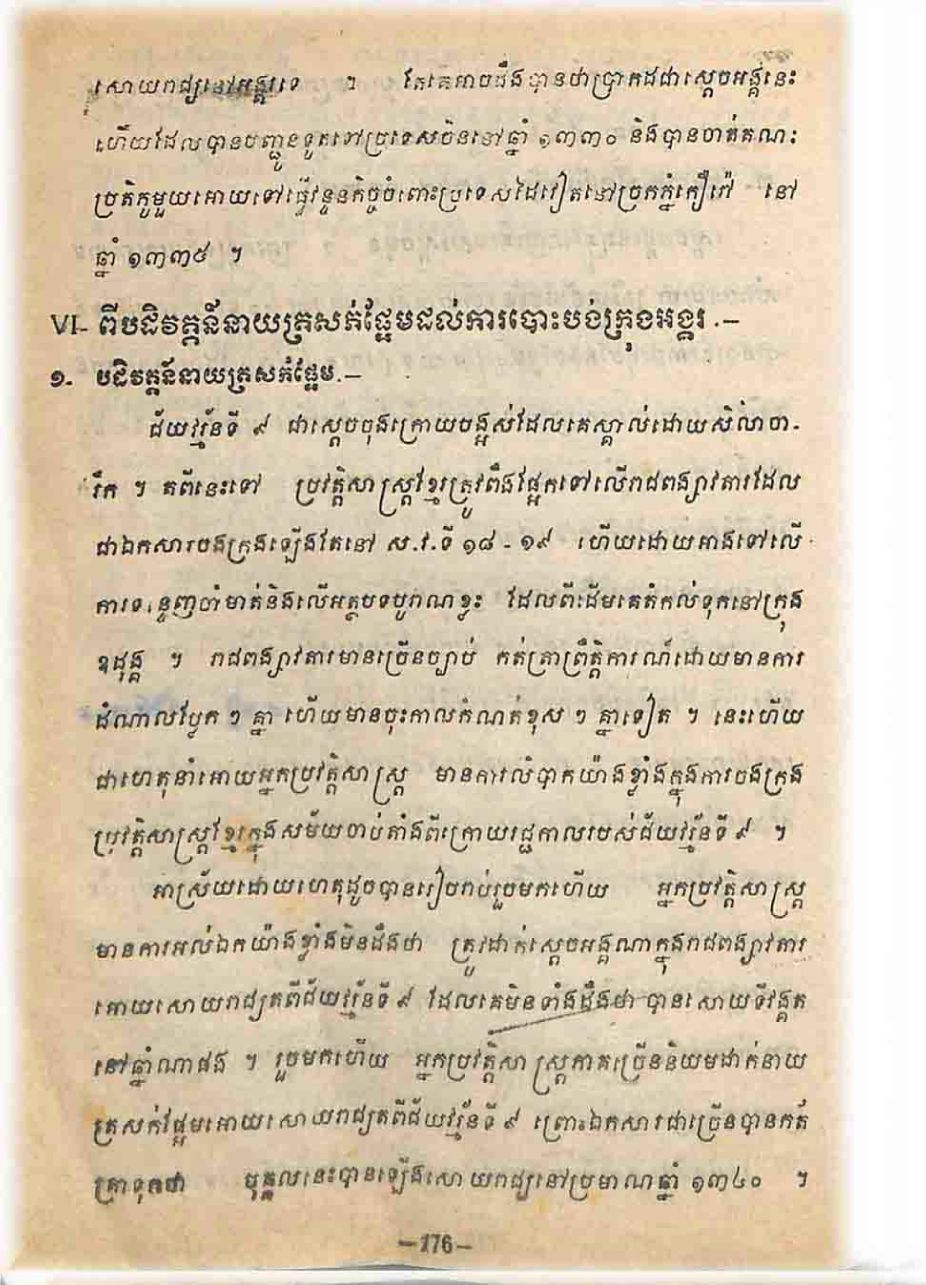 សោយរាជ្យនៅអង្គរទេ ។ តែគេអាចដឹងបានថាប្រាកដជាស្តេចអង្គនេះ
ហើយដែលបានបញ្ជូនទូតទៅប្រទេសចិននៅឆ្នាំ ១៣៣០ និងបានចាត់គណៈ
ប្រតិភូមួយអោយទៅធ្វើវន្ទនកិច្ចចំពោះប្រទេសដៃវៀតនៅច្រកភ្នំកឿរ៉ៅ នៅ
ឆ្នាំ ១៣៣៥ ។
VI- ពីបដិវត្តន៍នាយត្រសក់ផ្អែមដល់ការបោះបង់ក្រុងអង្គរ.–
១. បដិវត្តន៍នាយត្រសក់ផ្អែម.–
ជ័យវរ្ម័នទី ៩ ជាស្តេចចុងក្រោយបង្អស់ដែលគេស្គាល់ដោយសិលាចា-
រឹក ។ តពីនេះទៅ ប្រវត្តិសាស្ត្រខ្មែរត្រូវពឹងផ្អែកទៅលើរាជពង្សាវតារដែល
ជាឯកសារចងក្រងឡើងតែនៅ ស.វ.ទី ១៨ - ១៩ ហើយដោយអាងទៅលើ
ការទន្ទេញចាំមាត់និងលើអត្ថបទបូរាណខ្លះ ដែលពីដើមគេតំកល់ទុកនៅក្រុង
ឧដុង្គ ។ រាជពង្សាវតារមានច្រើនច្បាប់ កត់ត្រាព្រឹត្តិការណ៍ដោយមានការ
ដំណាលប្លែក ៗ គ្នា ហើយមានចុះកាលកំណត់ខុស ៗ គ្នាទៀត ។ នេះហើយ
ជាហេតុនាំអោយអ្នកប្រវត្តិសាស្ត្រ មានការលំបាកយ៉ាងខ្លាំងក្នុងការចងក្រង
ប្រវត្តិសាស្ត្រខ្មែរក្នុងសម័យចាប់តាំងពីក្រោយរជ្ជកាលរបស់ជ័យវរ្ម័នទី ៩ ។
អាស្រ័យដោយហេតុដូចបានរៀបរាប់រួចមកហើយ អ្នកប្រវត្តិសាស្ត្រ
មានការអល់ឯកយ៉ាងខ្លាំងមិនដឹងថា ត្រូវដាក់ស្តេចអង្គណាក្នុងរាជពង្សាវតារ
អោយសោយរាជ្យតពីជ័យវរ្ម័នទី ៩ ដែលគេមិនទាំងដឹងថា បានសោយទីវង្គត
នៅឆ្នាំណាផង ។ រួចមកហើយ អ្នកប្រវត្តិសាស្ត្រភាគច្រើននិយមដាក់នាយ
ត្រសក់ផ្អែមអោយសោយរាជ្យតពីជ័យវរ្ម័នទី ៩ ព្រោះឯកសារជាច្រើនបានកត់
ត្រាទុកថា បុគ្គលនេះបានឡើងសោយរាជ្យនៅប្រមាណឆ្នាំ ១៣៤០ ។
–176–